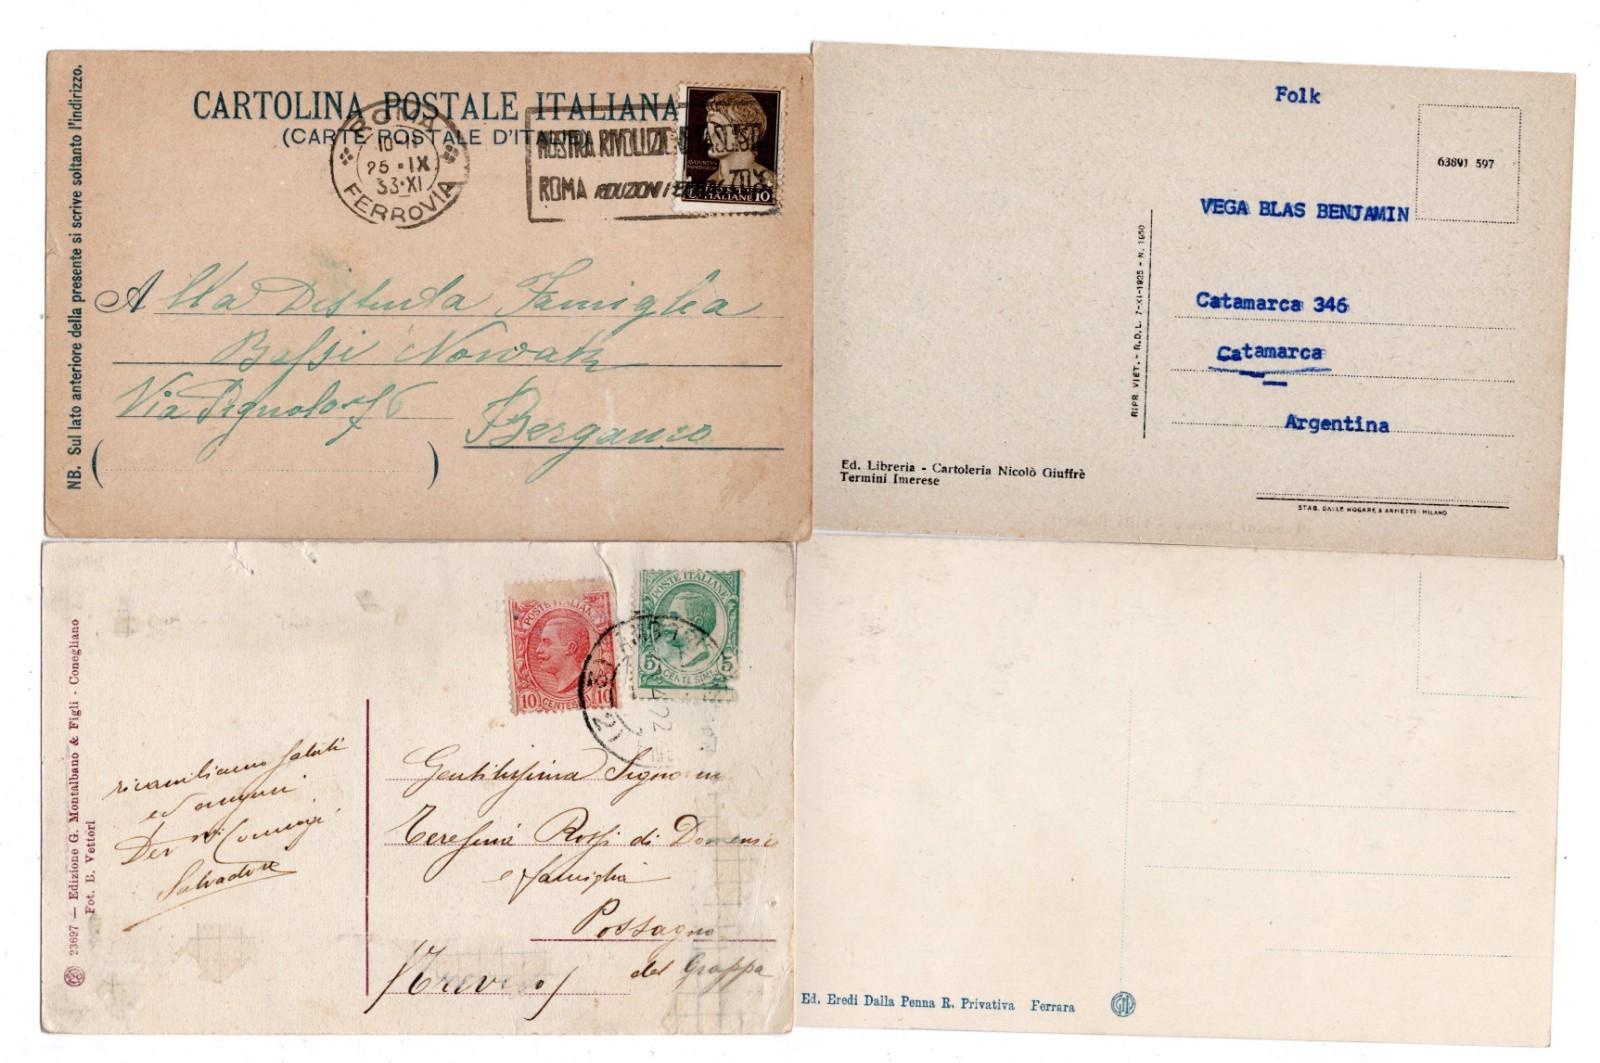 NB. Sul lato anteriore della presente si scrive soltanto l'indirizzo.
CARTOLINA POSTALE ITALIANA
(CARTE POSTALE D'ITALIE)
ROMA
10-11
25·IX
33·XI
FERROVIA
MOSTRA RIVOLUZIONE FASCIST
ROMA RIDUZIONI FERR 70%
POSTE ITALIANE 10
Alla Distinta Famiglia
Via Pignolo 76
Bergamo
(                    )
Folk
63891 597
VEGA BLAS BENJAMIN
Catamarca 346
Catamarca
Argentina
RIPR. VIET. - R.D.L. 7-XI-1925 - N. 1950
Ed. Libreria - Cartoleria Nicolò Giuffrè
Termini Imerese
STAB. DALLE NOGARE & ARMETTI - MILANO
23697 — Edizione G. Montalbano & Figli - Conegliano
Fot. B. Vettori
POSTE ITALIANE
10 CENTESIMI 10
POSTE ITALIANE
5 5
CENTESIMI
ricambiamo saluti
ed auguri
Salvadore
Gentilissima Signorina
Teresina Rossi di Domenico
e famiglia
Possagno
del Grappa
(Treviso)
Ed. Eredi Dalla Penna R. Privativa Ferrara